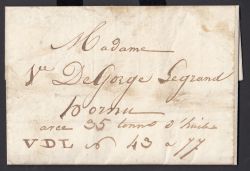 Madame
Ve DeGorge Legrand
hornu
avec 35 tonns d'huile
VDL No 43 a 77